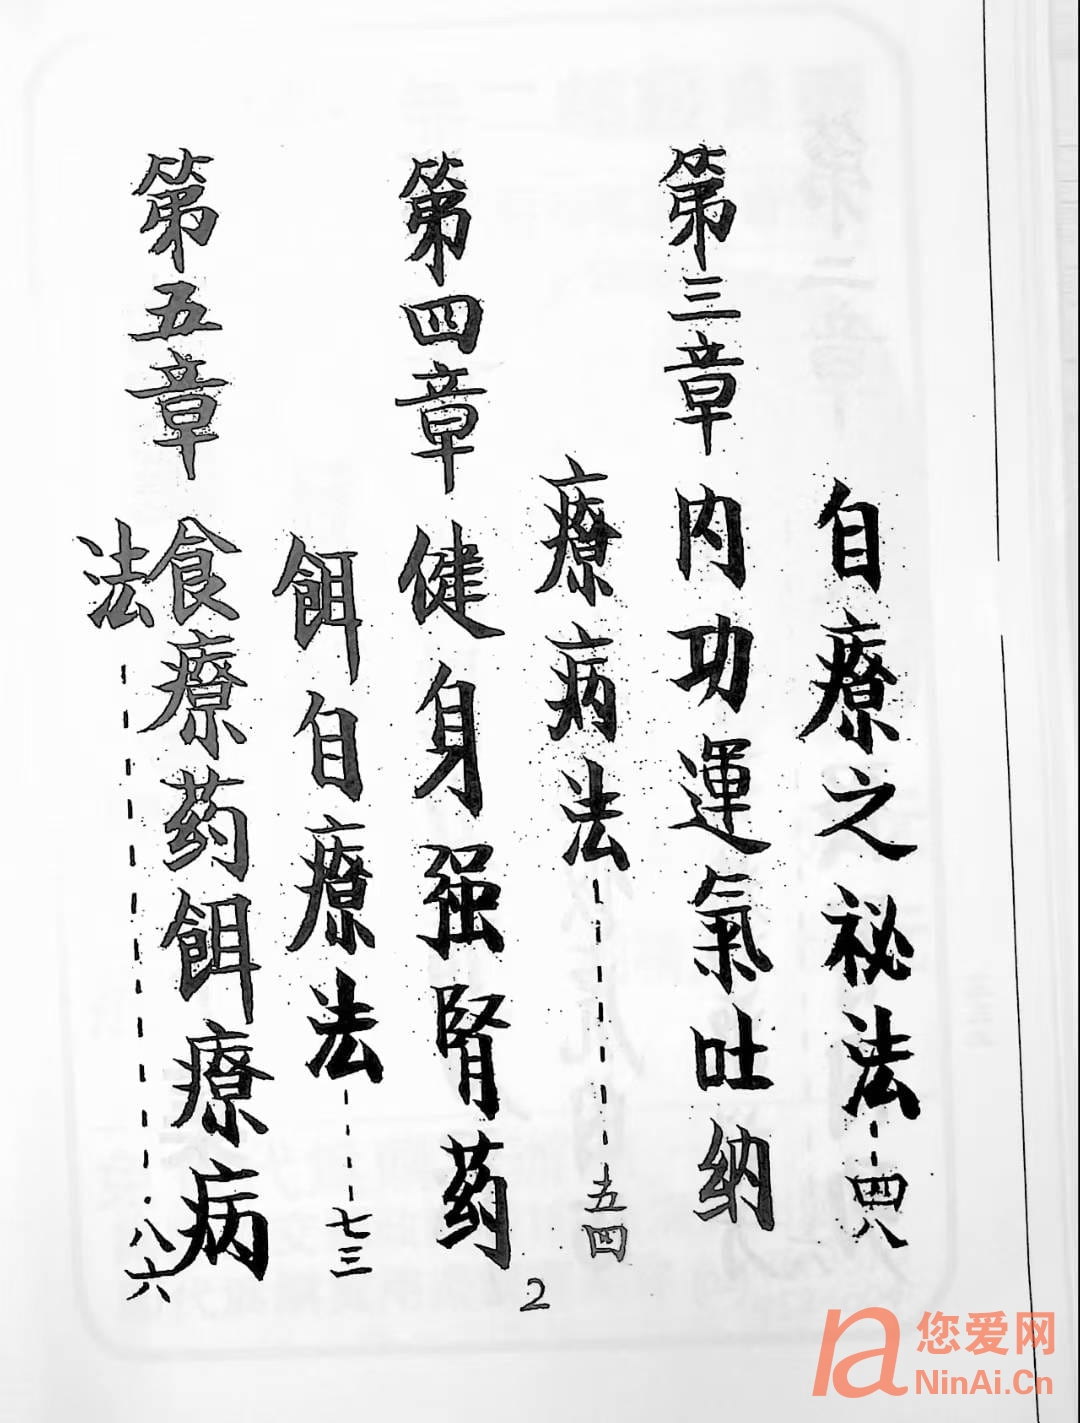 自療之祕法---四八
第三章 内功運氣吐纳
療病法---------五四
第四章 健身强腎药
餌自療法----七三
第五章 食療药餌療病
法------------八六
2
您爱网
NinAi.Cn